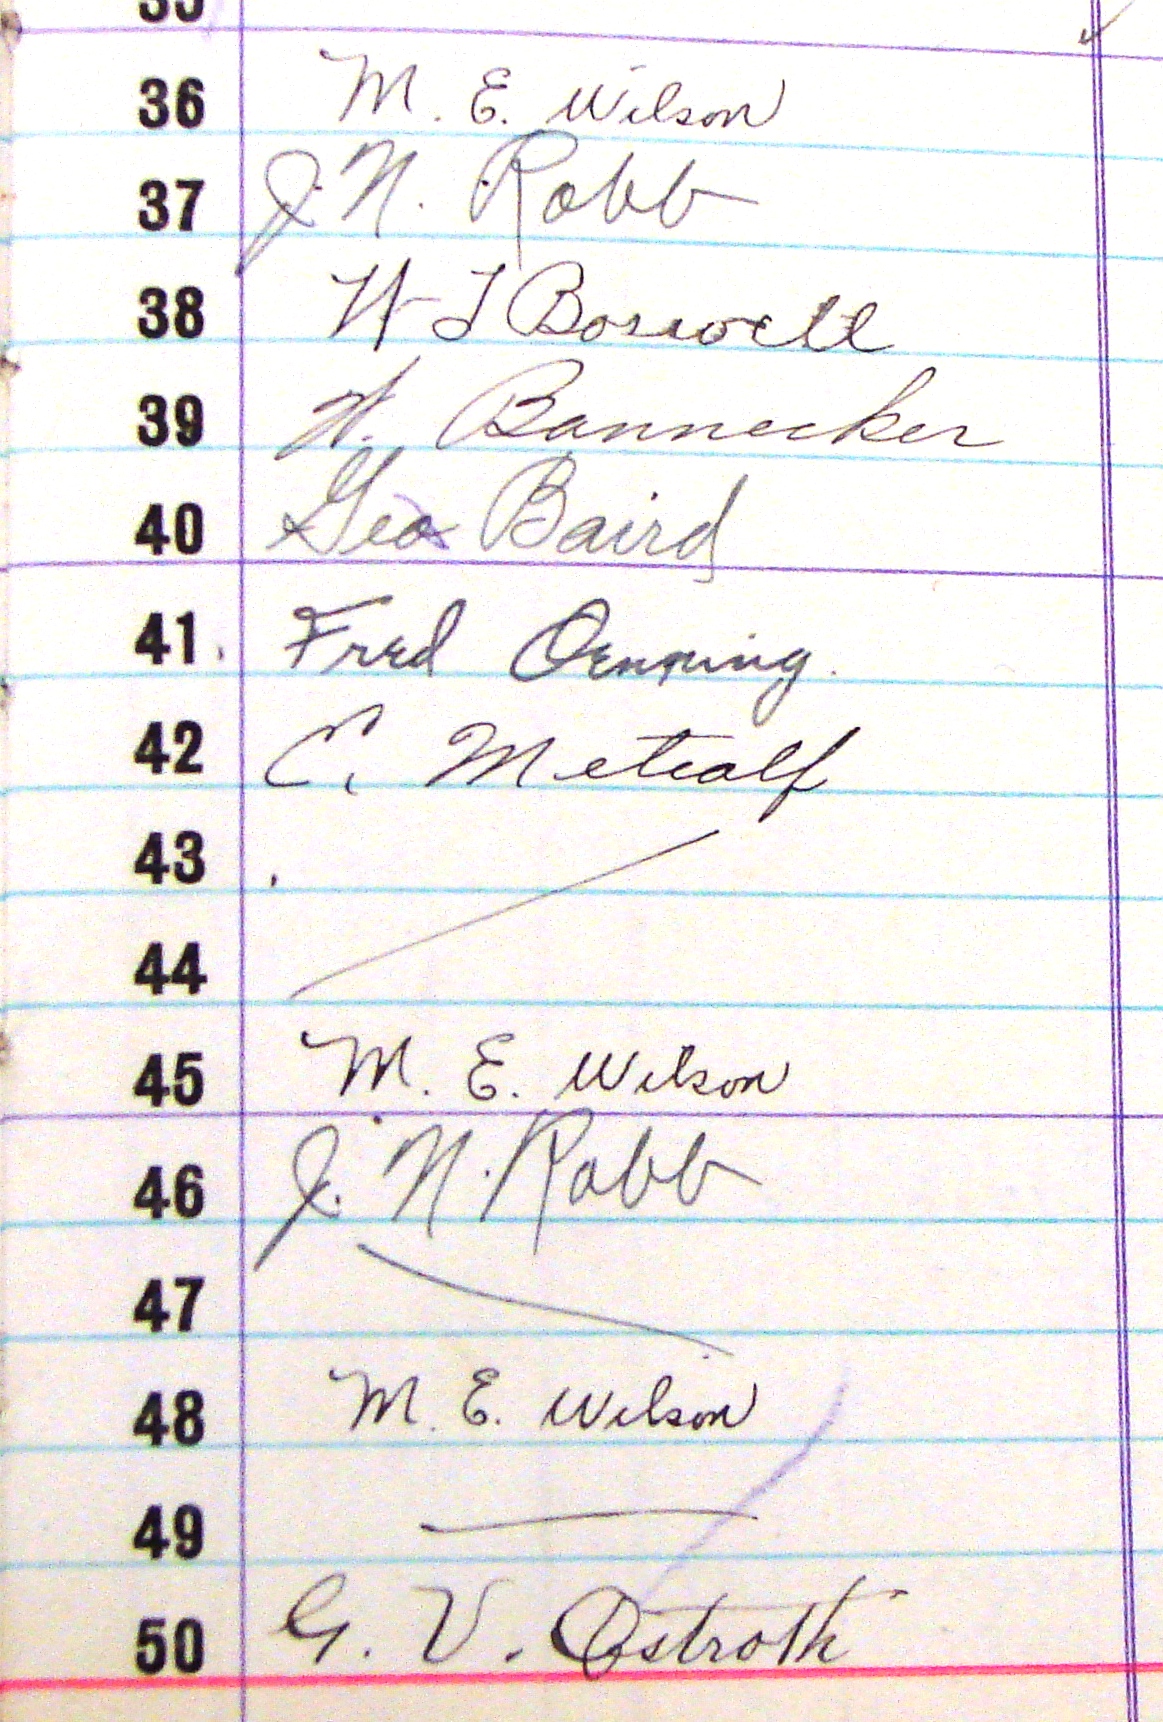 35
36 M. E. Wilson
37 J. N. Robb
38 W T Boswell
39 W. Bannecker
40 Geo Baird
41 Fred Oenning.
42 C. Metcalf
43
44
45 M. E. Wilson
46 J. N. Robb
47
48 M. E. Wilson
49
50 G. V. Ostroth